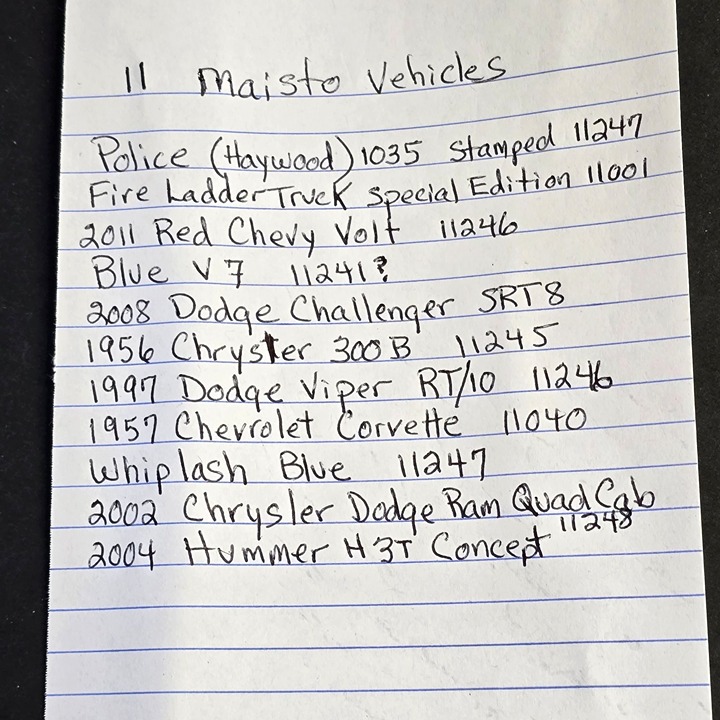 11 Maisto Vehicles
Police (Haywood) 1035 Stamped 11247
Fire Ladder Truck Special Edition 11001
2011 Red Chevy Volt 11246
Blue V7 11241?
2008 Dodge Challenger SRT8
1956 Chrysler 300B 11245
1997 Dodge Viper RT/10 11246
1957 Chevrolet Corvette 11040
Whiplash Blue 11247
2002 Chrysler Dodge Ram Quad Cab
11248
2004 Hummer H3T Concept